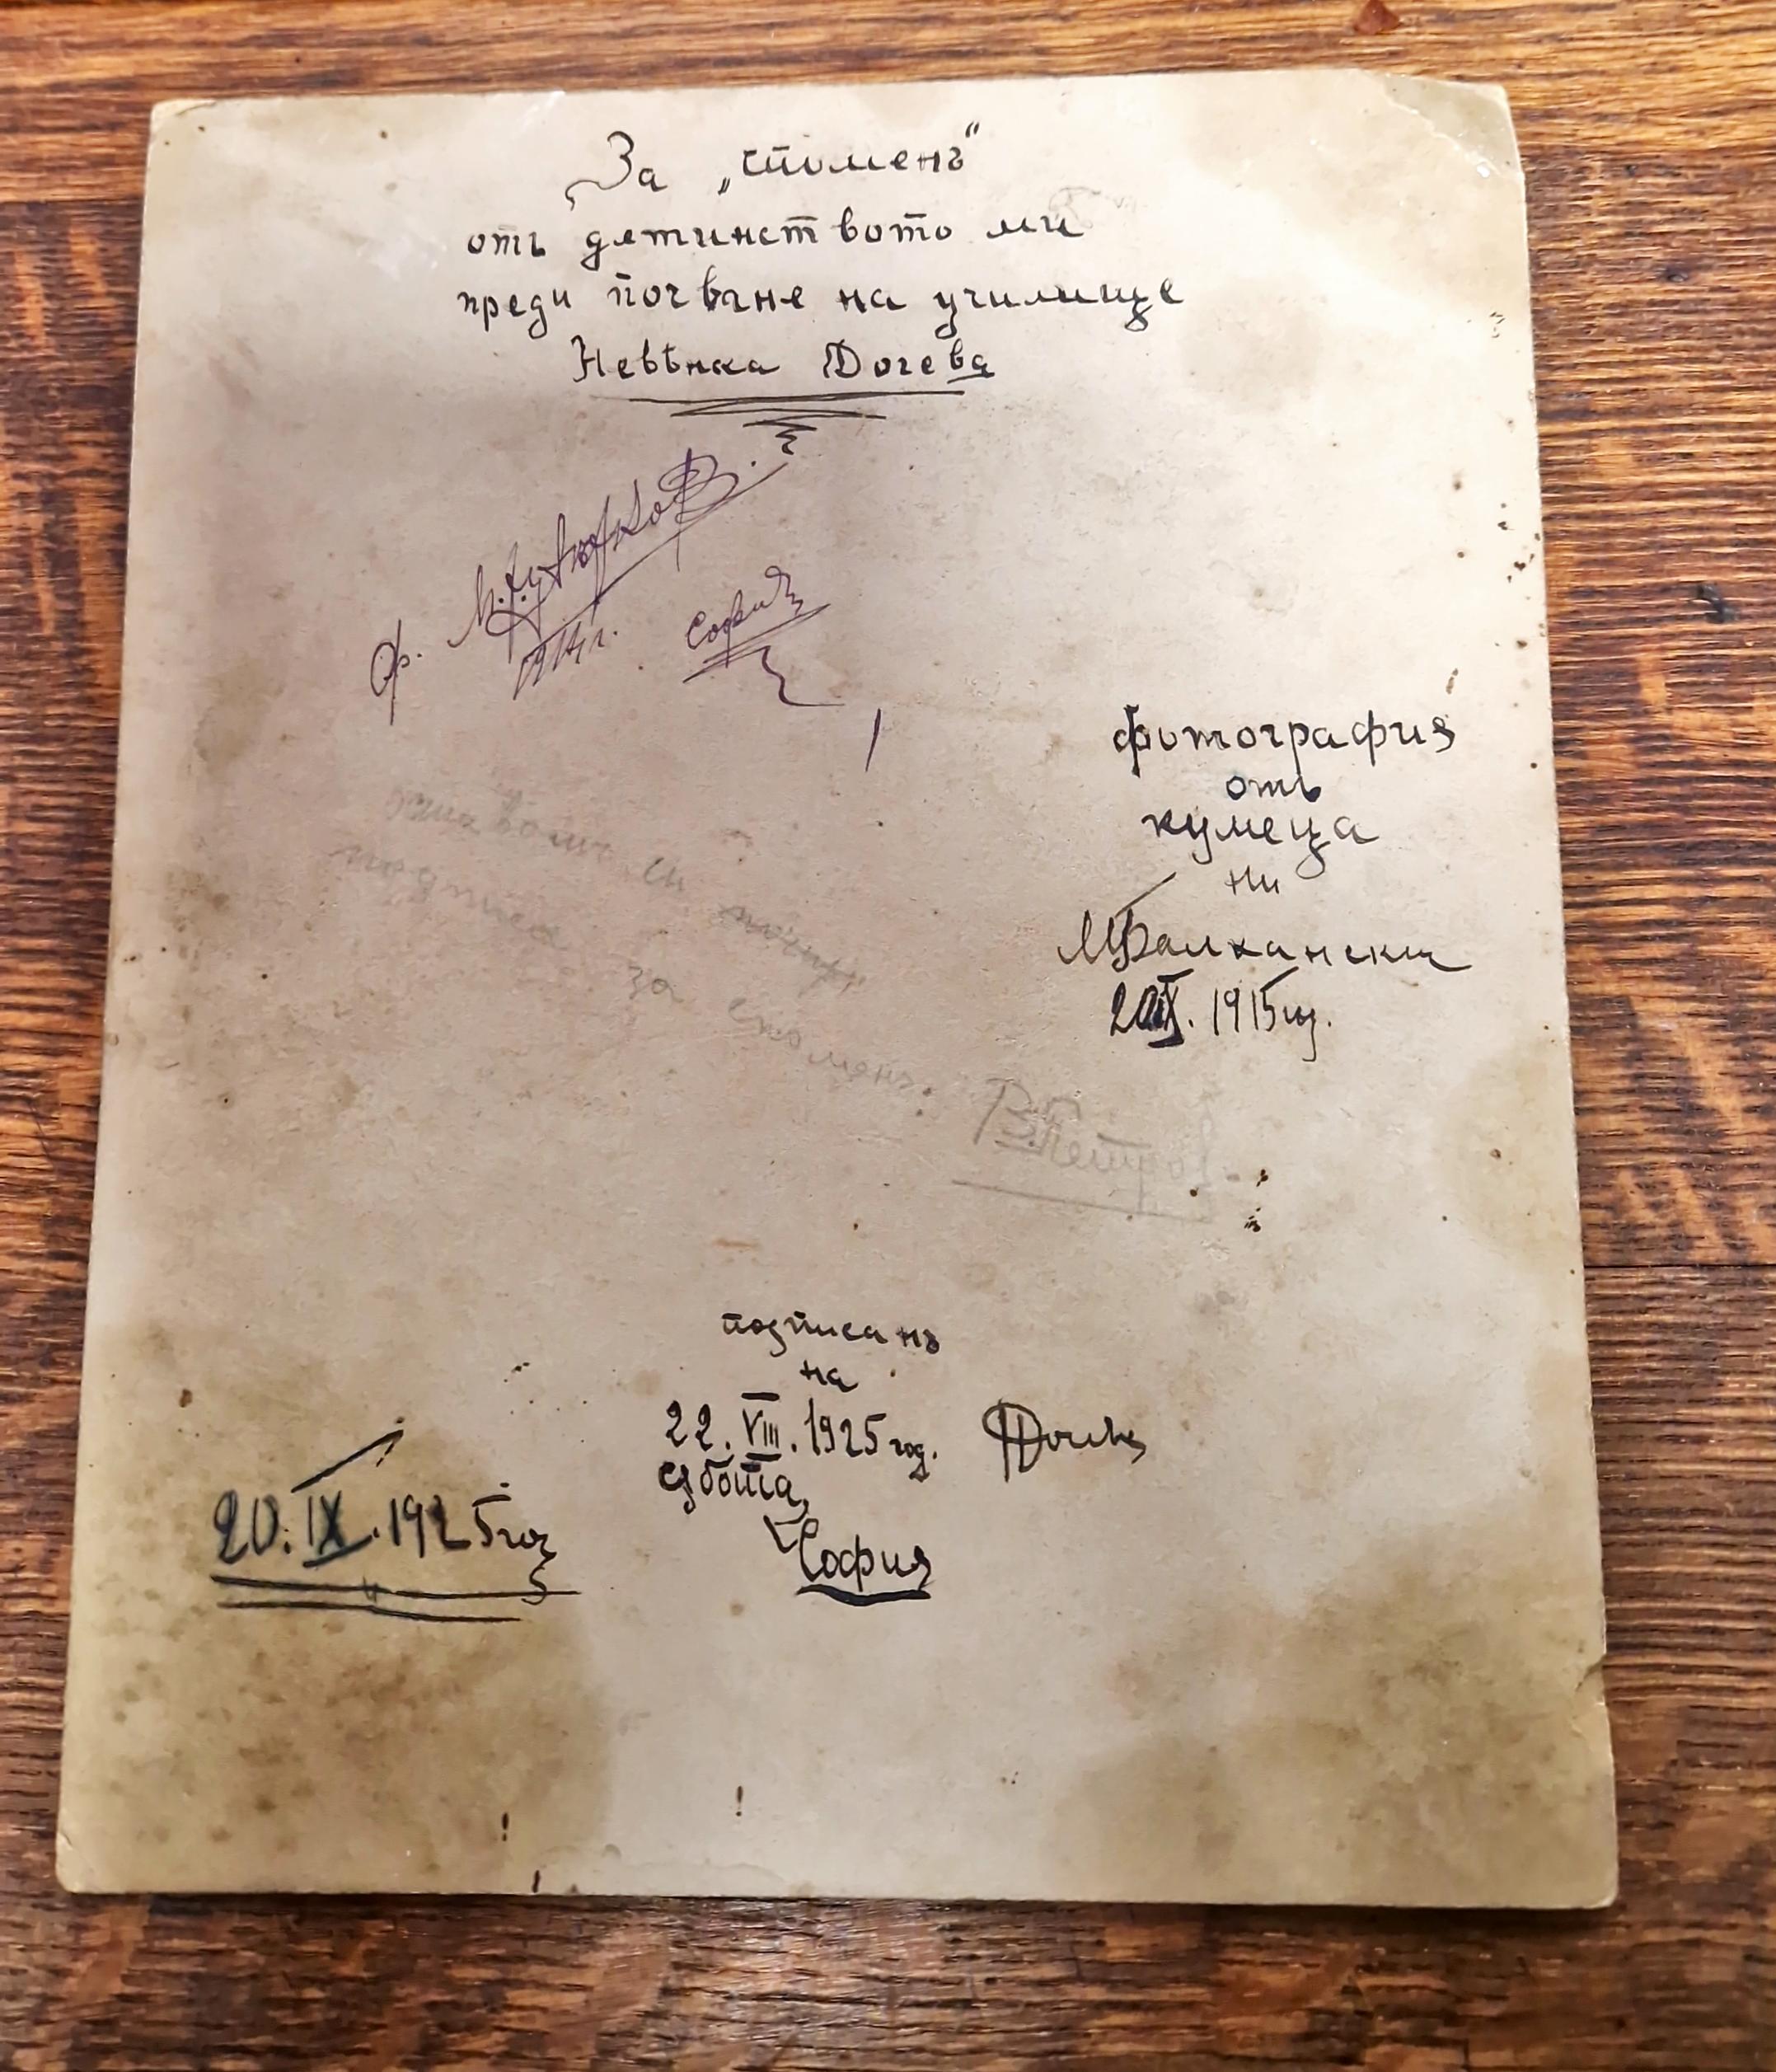 За „споменъ“
отъ детинството ми
преди почване на училище
Невѣнка Дочева
ф. М.
1914 г. София
фотография
отъ
кумеца
ни
МБалкански
20 IX. 1915 год.
си
подписа
за споменъ.
В. Петров.
подписанъ
на
22. VIII. 1925 год.
събота,
София
20. IX. 1925 год